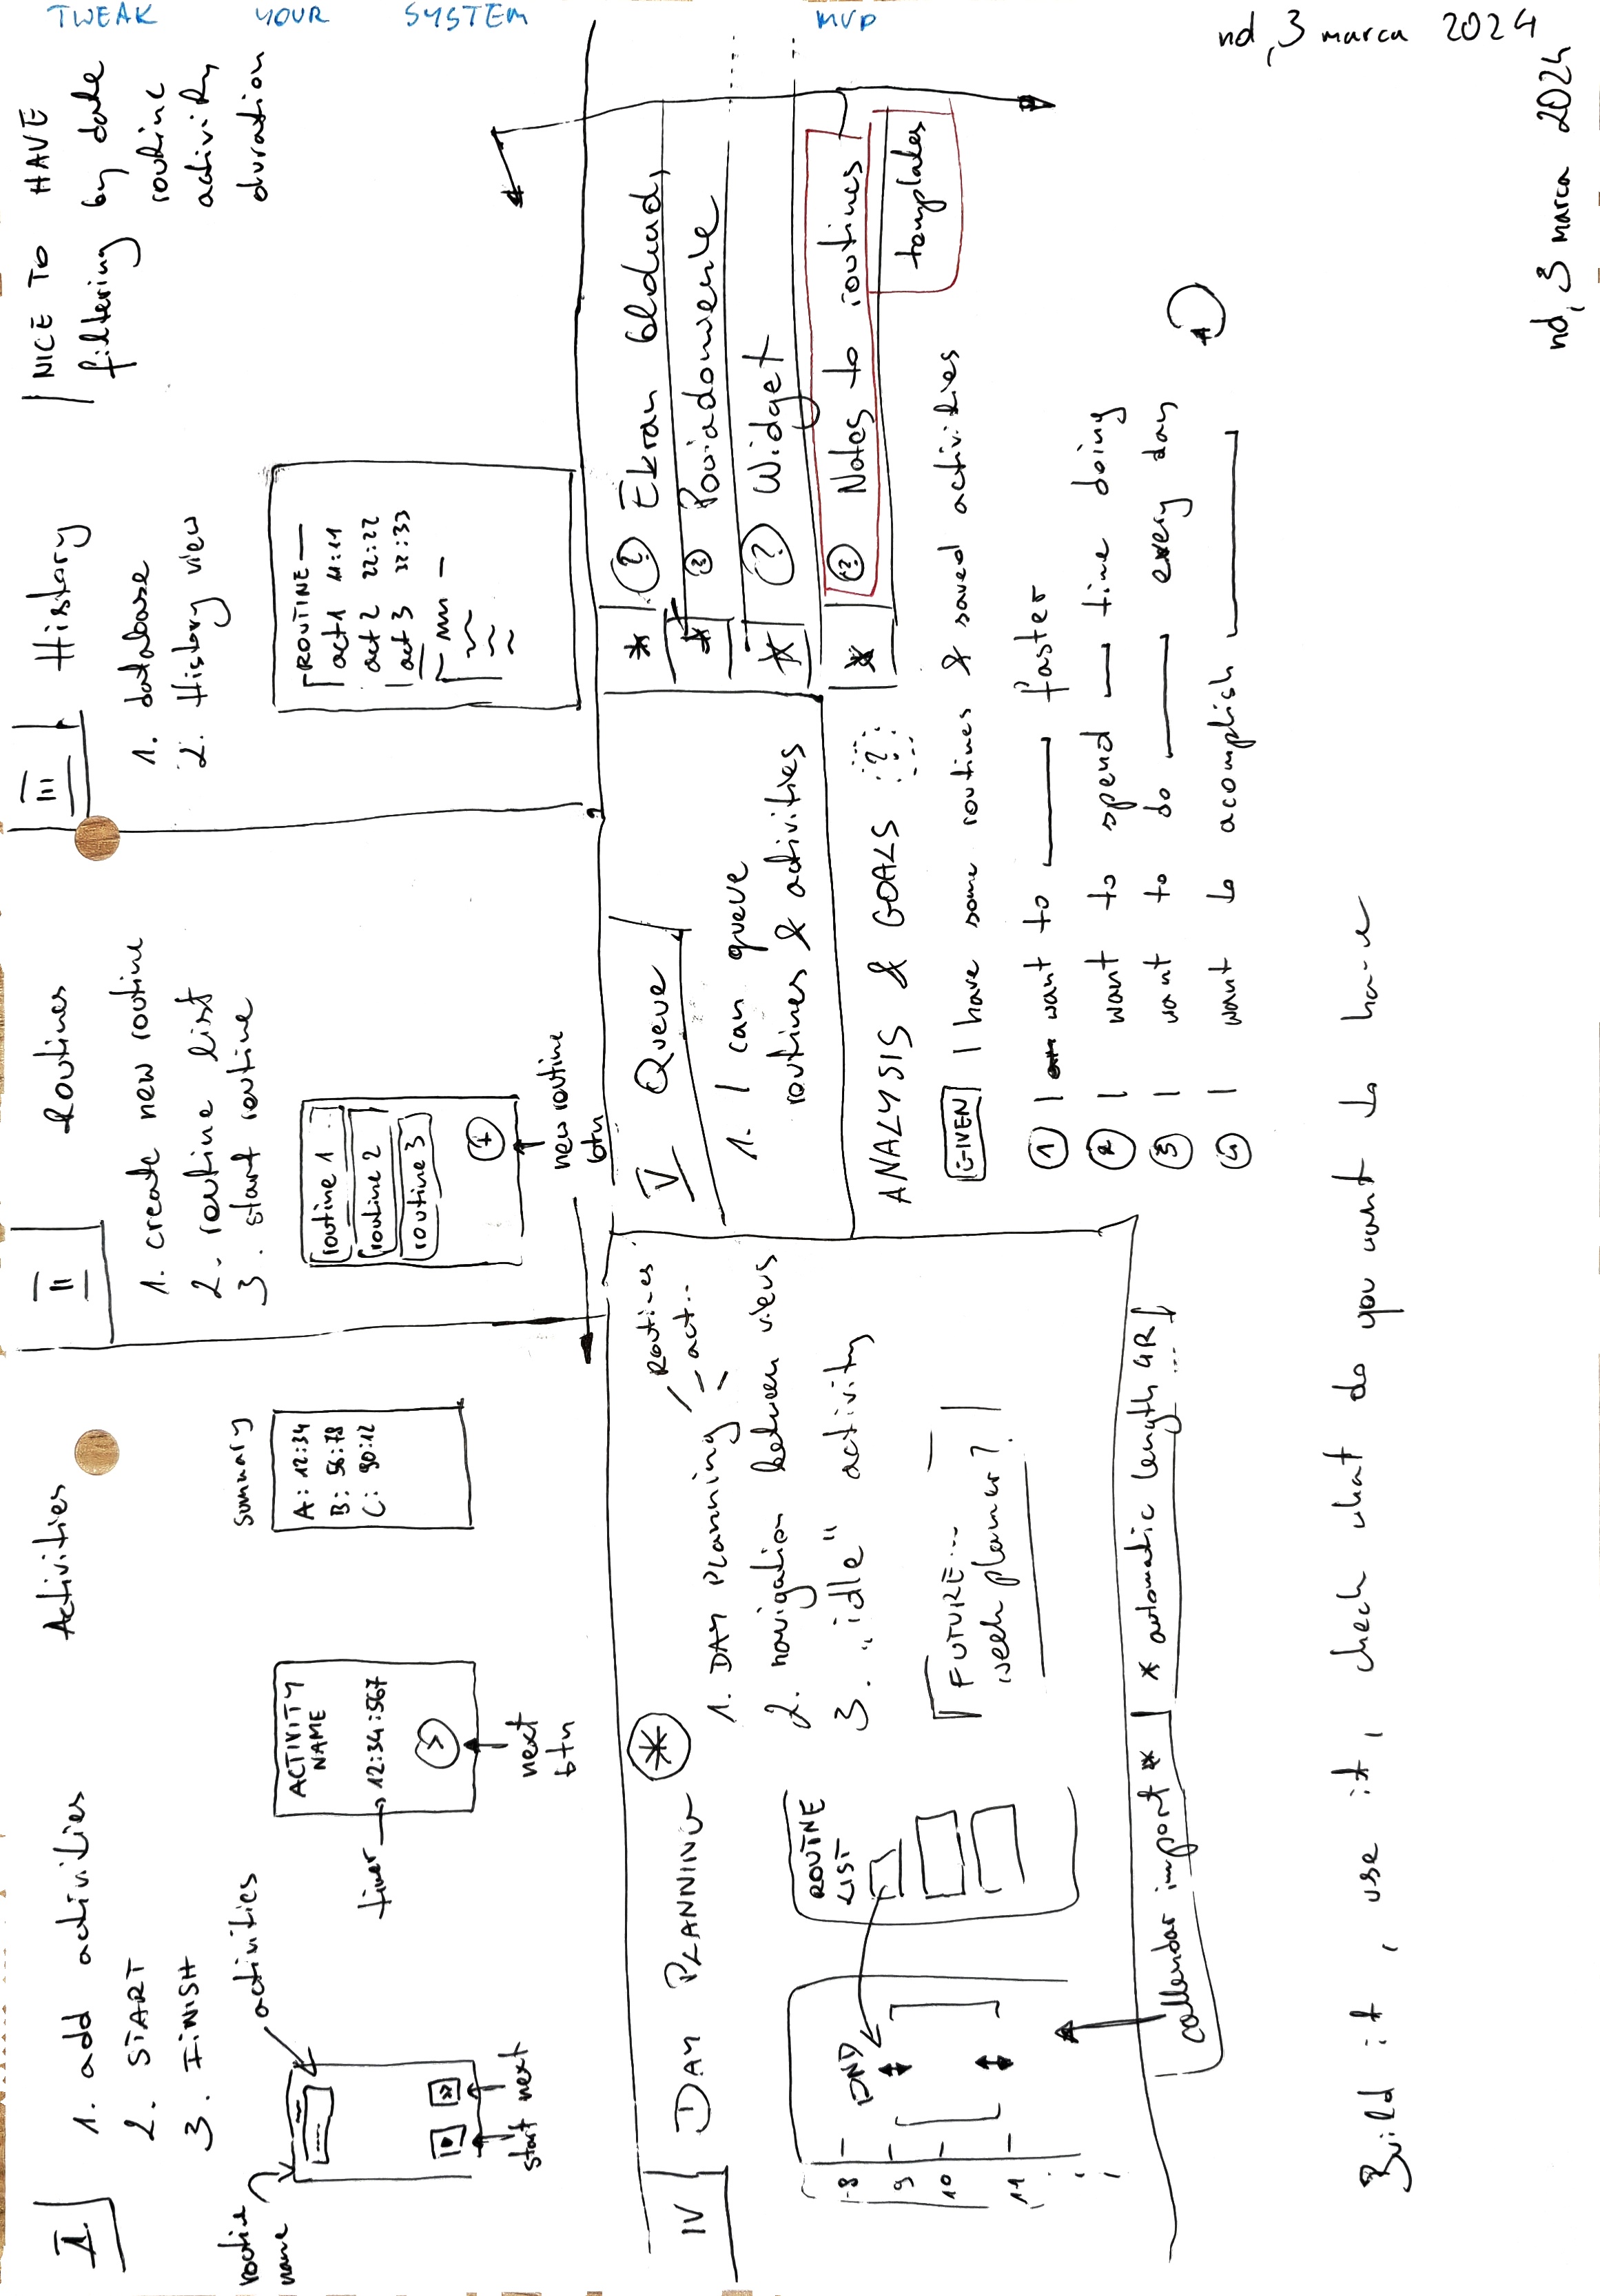 I
1. add activities
2. START
3. FINISH
Activities
routine
name
activities
start
next
ACTIVITY
NAME
timer
12:34:567
next
btn
summary
A: 12:34
B: 56:78
C: 90:12
II
Routines
1. create new routine
2. routine list
3. start routine
routine 1
routine 2
routine 3
+
new routine
btn
III
History
1. database
2. History view
NICE TO HAVE
filtering by date
routine
activity
duration
ROUTINE
act1 11:11
act 2 22:22
act 3 33:33
TWEAK YOUR SYSTEM MVP
IV
DAY PLANNING *
1. DAY PLanning
Routines
act..
2. navigation between views
3. „idle" activity
8
9
10
11
DND
ROUTINE
LIST
FUTURE...
week planner?
callendar import *
* automatic length 4R
...
V Queue
1. I can queue
routines & activities
* ? Ekran blokady
* ? Powiadomienie
* ? Widget
* ? Notes to routines
templates
ANALYSIS & GOALS ?
GIVEN I have some routines & saved activities
1 I want to ____ faster
2 I want to spend __ time doing
3 I want to do ____ every day
4 I want to acomplish ______
Build it, use it, check what do you want to have
nd, 3 marca 2024
nd, 3 marca 2024